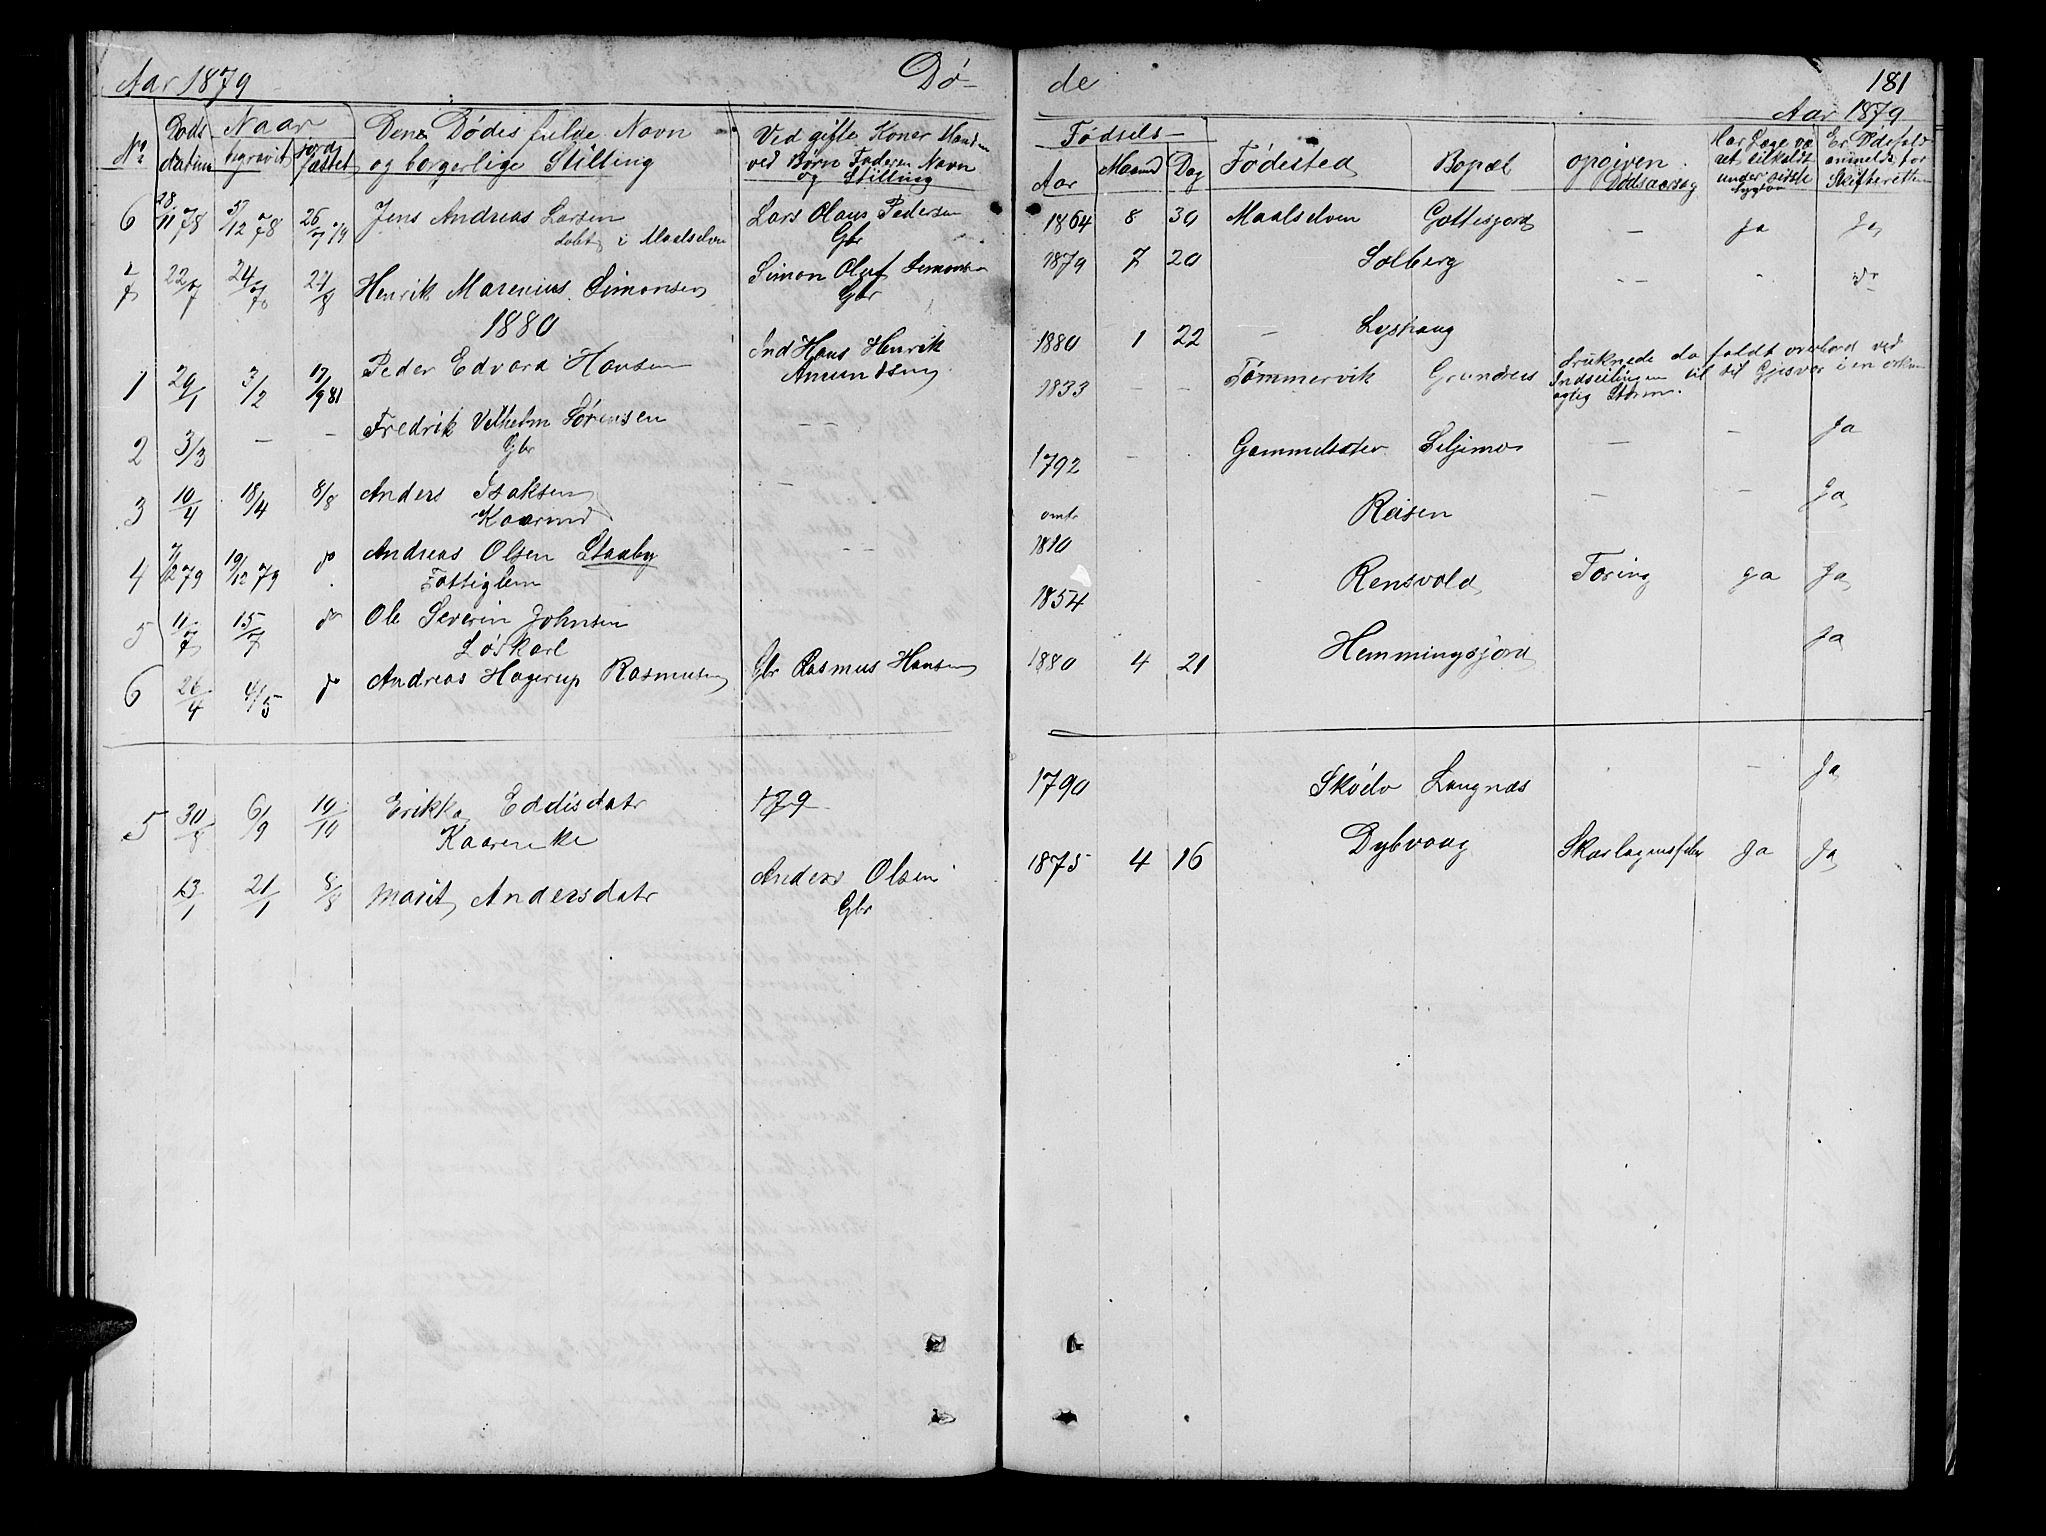 Aar 1879 Dø- de 181
Aar 1879
No Døds datum Naar begravet jord fæstet Dens Dødes fulde Navn og borgerlige Stilling Ved gifte Koner Mandens ved Børn Faderens Navn og Stilling
Fødsels- Aar Maaned Dag Fødested Bopæl opgiven Dødsaarsag Har Læge været tilkaldt under sidste Sygdom Er Dødsfaldet anmeldt for Skifteretten
6 28/11 78 5/12 78 26/7 79 Jens Andreas Larsen Lars Olaus Pedersen 1864 8 30 Maalselven Gottesjord — Ja Ja
døbt i Maalselven Gbr
7 22/7 24/7 24/8 Henrik Marenius Simonsen Simon Oluf Simonsen 1879 7 20 Solberg -- - do
Gbr
1880
1 29/1 3/2 17/9 81 Peder Edvard Hansen Ind Hans Henrik Amundsen 1880 1 22 - Lyshaug
2 3/3 — — Fredrik Vilhelm Sørensen — — 1833 — — Tømmervik Grundnes druknede da faldt overbord ved
Indseilingen til Gjesvær i en orkan
agtig Storm.
Gbr — Ja
3 10/4 18/4 8/8 Anders Isaksen — 1792 — — Gammelsæter Seljemo — — Ja
Kaarmd
4 7/12 79 19/12 79 do Andreas Olsen Staaby — — omtr 1810 Reisen — — Ja
Fattiglem
5 11/7 15/7 do Ole Severin Johnsen 1854 Rensvold Tæring ja Ja
Løskarl
6 26/4 4/5 do Andreas Hagerup Rasmusen Gbr Rasmus Hansen 1880 4 21 Hemmingsjord Ja
5 30/8 6/9 19/10 Erikka Eddisdatr 179 1790 Skøelv Langnæs — Ja
Kaarenke
13/1 21/1 8/8 Marit Andersdatr Anders Olsen 1875 4 16 Dybvaag Skarlagensfeber Ja Ja
Gbr